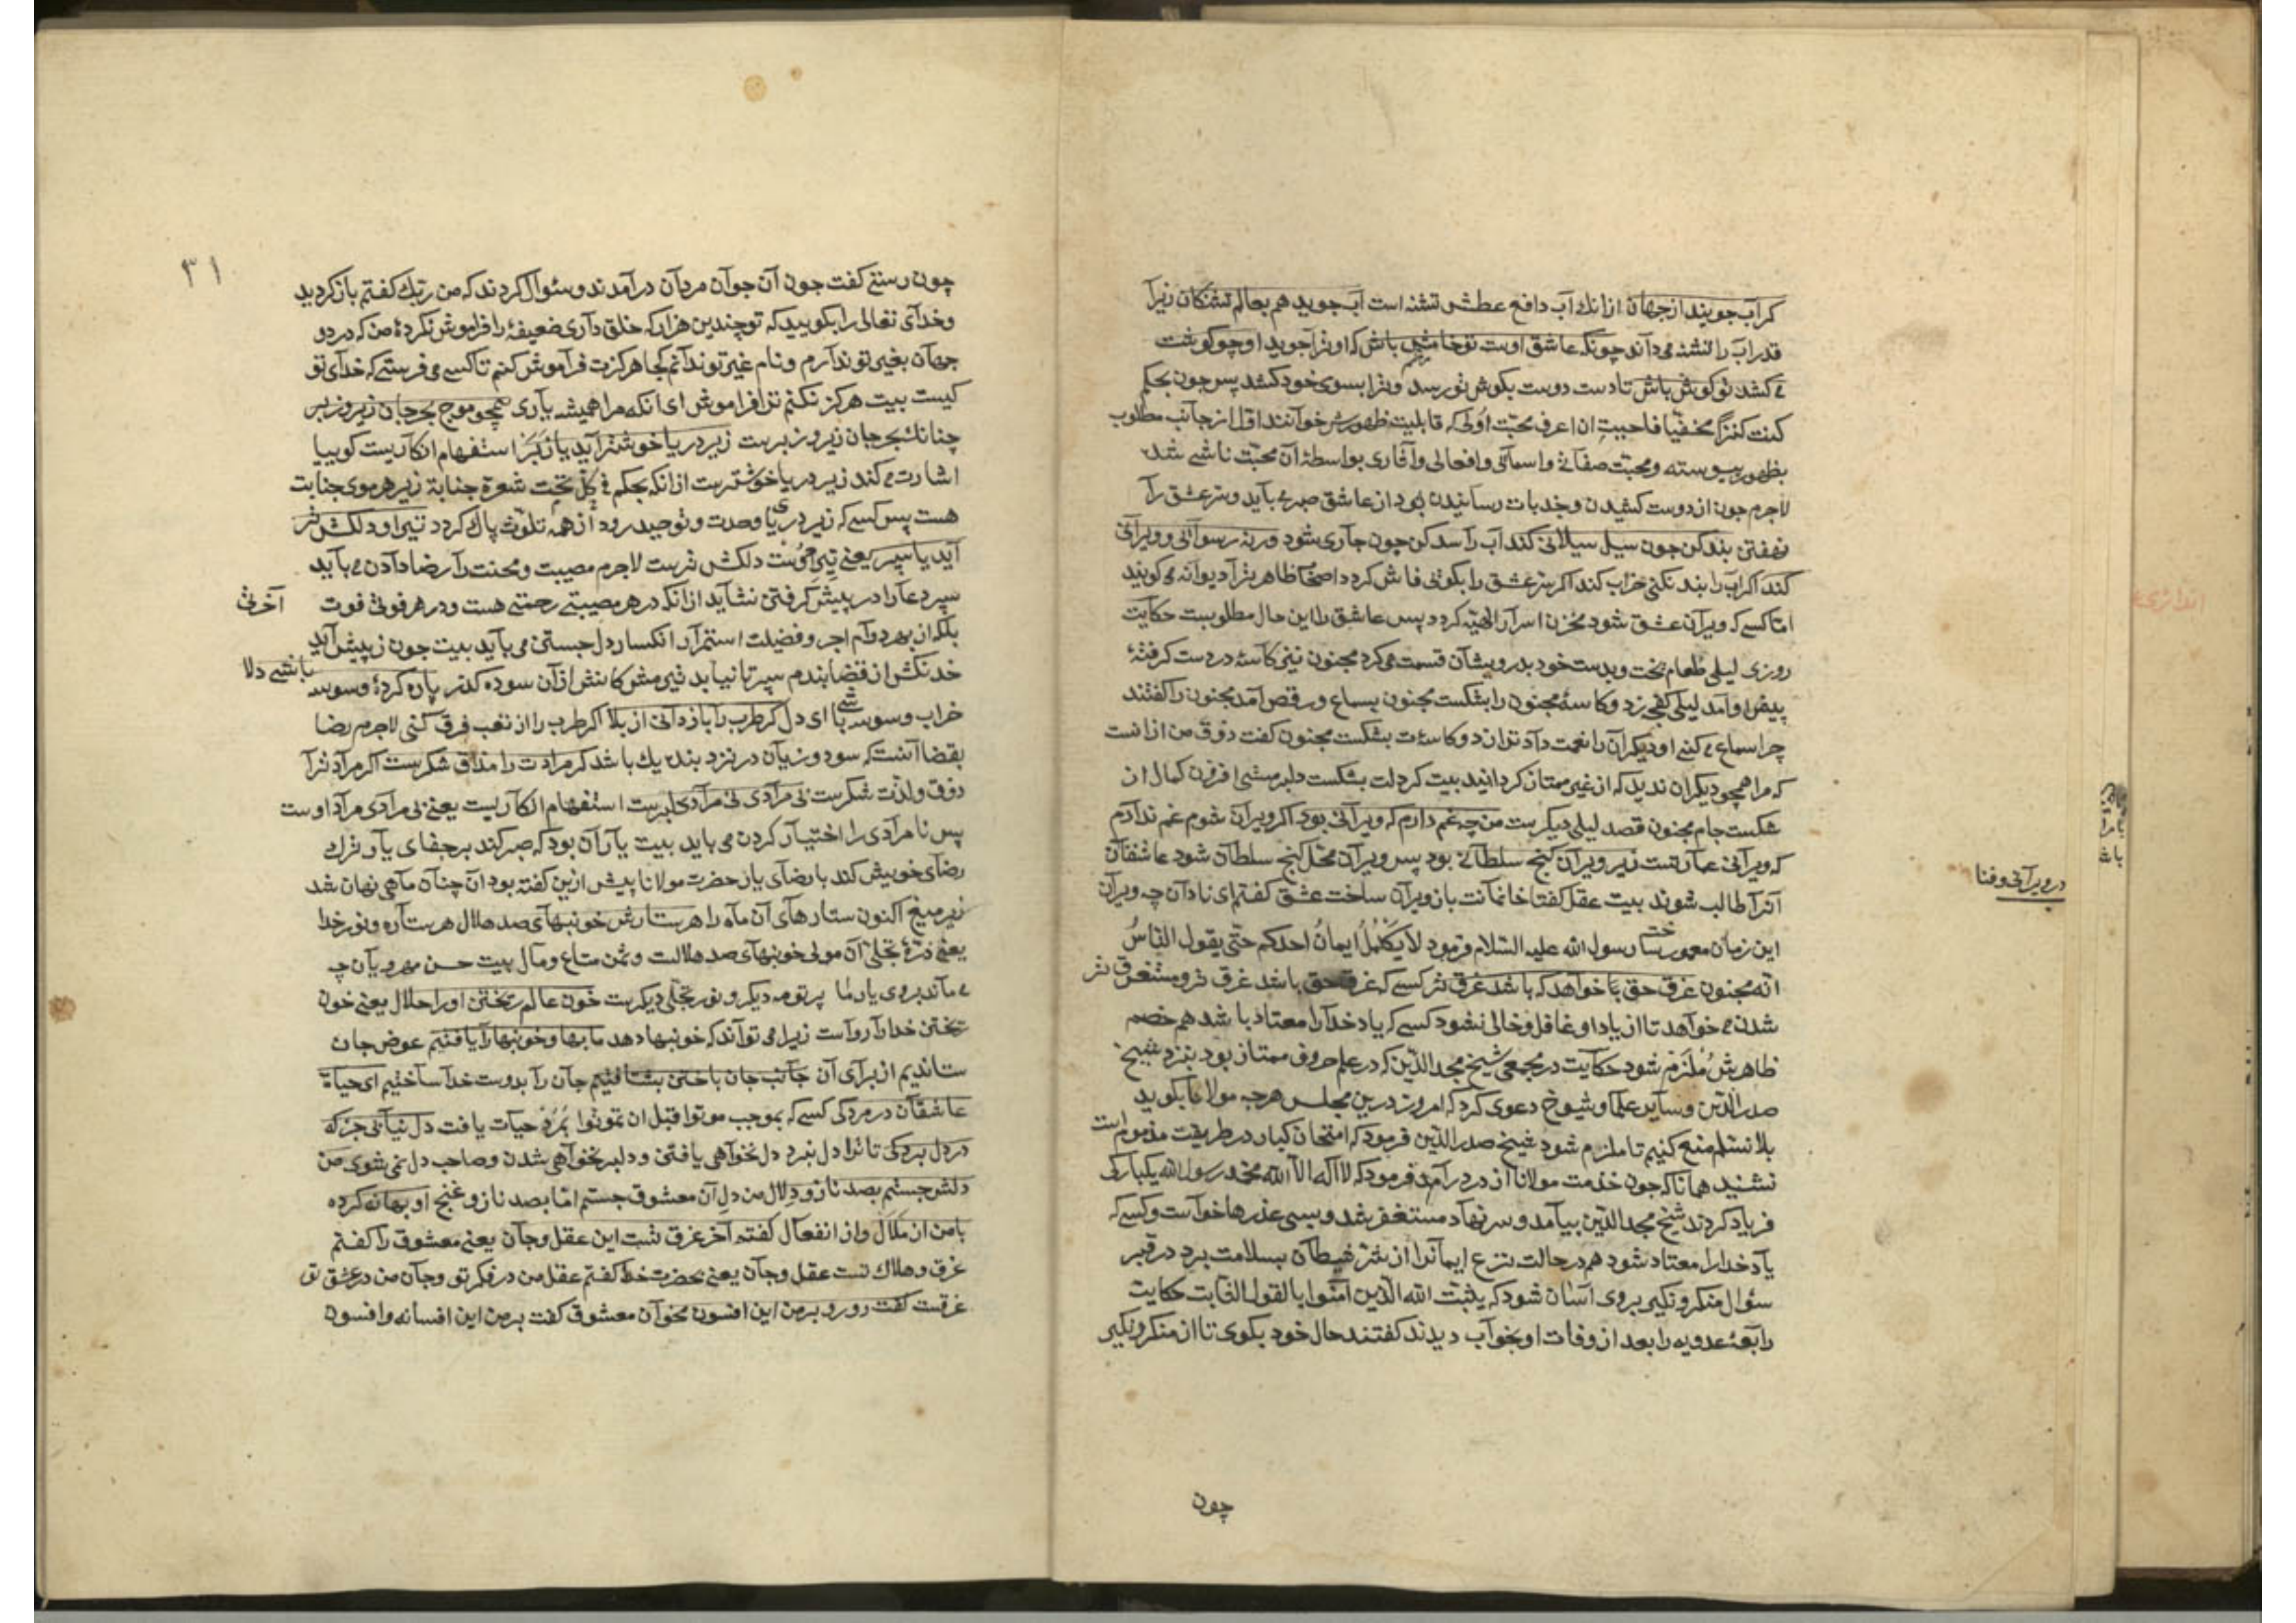 گر آب جویند از جهان ازانك آب دافع عطش تشنه است آب جوید هم بعالم تشنکان زیرا
قدر اب را تشنه می داند چونکه عاشق اوست تو خامش باش که او ترا جوید او چو کوشت
می کشد تو کوش باش تا دست دوست بکوش تو رسد و ترا بسوی خود کشد پس چون بحکم
کنت کنزا مخفیا فاحببت ان اعرف محبت اولی که قابلیت ظهورش خوانند اول از جانب مطلوب
بظهور پیوسته و محبت صفاتی و اسمائی و افعالی و آثاری بواسطهٔ آن محبت ناشی شد
لاجرم چون از دوست کشیدن و جذبات رسانیدن بود از عاشق صبر می باید و سر عشق را
نهفتن بند کن چون سیل سیلانی کند آب را سد کن چون جاری شود ورنه رسوائی و ویرانی
کند اکر اب را بند نکنی خراب کند اکر سر عشق را بکوئی فاش کردد اصحاب ظاهر ترا دیوانه می کویند
اما کسی که ویران عشق شود مخزن اسرار الهیه کردد پس عاشق را این حال مطلوبست حکایت
روزی لیلی طعام پخت و بدست خود بدرویشان قسمت می کرد مجنون نیز کاسهٔ در دست کرفته
پیش او آمد لیلی کفچه زد و کاسهٔ مجنون را بشکست مجنون بسماع و رقص آمد مجنون را کفتند
چرا سماع می کنی او دیکران را نعمت داد ترا نداد و کاسه ات بشکست مجنون کفت ذوق من ازانست
که مرا همچو دیکران ندید که از غیر ممتاز کردانید بیت کر دلت بشکست دلبر مشی افزون کمال ان
شکست جام مجنون قصد لیلی دیکرست من چه غم دارم که ویرانی بود اکر ویران شوم غم ندارم
که ویرانی عمارتست زیر ویران کنج سلطانی بود پس ویران محل کنج سلطان شود عاشقان
آنرا طالب شوند بیت عقل کفتا خانمانت باز ویران ساخت عشق کفتم ای نادان چه ویران
این زمان معمور ساخت رسول الله علیه السلام فرمود لا یکمل ایمان احدکم حتی یقول الناس
انه مجنون غرق حق خواهد که باشد غرق تر کسی که غرق حق باشد غرق تر و مستغرق تر
شدن می خواهد تا از یاد او غافل و خالی نشود کسی که یاد خدا را معتاد باشد هم خصم
ظاهرش ملزم شود حکایت در مجمعی شیخ مجد الدین که در علم حروف ممتاز بود بنزد شیخ
صدر الدین و سایر علما و شیوخ دعوی کرد که امروز درین مجلس هرچه مولانا بکوید
بلا نسلم منع کنیم تا ملزم شود شیخ صدر الدین فرمود که امتحان کبار در طریقت مذموم است
نشنید همانا که چون خدمت مولانا از در در آمد فرمود که لا اله الا الله محمد رسول الله یکبارکی
فریاد کردند شیخ مجد الدین بیامد و سر نهاد مستغفر شد و بسی عذرها خواست و کسی که
یاد خدا را معتاد شود هم در حالت نزع ایمانرا از شر شیطان بسلامت برد در قبر
سؤال منکر و نکیر بروی آسان شود که یثبت الله الذین امنوا بالقول الثابت حکایت
رابعهٔ عدویه را بعد از وفات او بخواب دیدند کفتند حال خود بکوی تا از منکر و نکیر
چون
در ویرانی و فنا
۳۱
چون رستی کفت چون آن جوان مردان در آمدند و سئوال کردند که من ربك کفتم باز کردید
و خدای تعالی را بکویید که تو چندین هزار که خلق داری ضعیفهٔ را فراموش نکردهٔ من که در دو
جهان بغیر تو ندارم و نام غیر تو ندانم کجا هرکزت فراموش کنم تا کسی می فرستی که خدای تو
کیست بیت هرکز نکنم ترا فراموش ای انکه مرا همیشه یاری همچو موج بحر جان زیر و زبر
چنانك بحر جان زیر و زبرست زیر دریا خوشتر آید یا زبر استفهام انکاریست کوییا
اشارت می کند زیر دریا خوشترست ازانکه بحکم فی کل تحت شعرة جنابة زیر هر موی جنابت
هست پس کسی که زیر دریای وحدت و توحید رود از همه تلوث پاك کردد تیر او دلکش تر
آید یا سپر یعنی تیر دوست دلکش ترست لاجرم مصیبت و محنت را رضا دادن می باید
سپر دعا را در پیش کرفتن نشاید ازانکه در هر مصیبتی رحمتی هست و در هر فوتی قوت آخرتی
بلکه از بهر دوام اجر و فضیلت استمرار انکسار دل جستن می باید بیت چون ز پیش آید
خدنکش از قضا بندم سپر تا نیاید تیر مش کانش ازان سوده کذر پاره کردهٔ وسوسه باشی دلا
خراب وسوسه باشی ای دل کر طرب را باز دانی از بلا اکر طرب را از تعب فرق کنی لاجرم رضا
بقضا آنست که سود و زیان در نزد بنده یك باشد کر مرادت را مذاق شکرست اکر مراد ترا
ذوق و لذت شکرست نی مرادی نی مراد دلبرست استفهام انکاریست یعنی نی مرادی مراد اوست
پس نامرادی را اختیار کردن می باید بیت یار آن بود که صبر کند بر جفای یار ترك
رضای خویش کند با رضای یار حضرت مولانا پیش ازین کفته بود ان چنان ماهی نهان شد
زیر میغ اکنون ستارهای آن ماه را هر ستارش خونبهای صد هلال هر ستاره و نور خدا
یعنی ذرهٔ تجلی آن مولی خونبهای صد هلالست و ثمن متاع و مال بیت حسن مهرویان چه
می ماند بروی یار ما پرتو مه دیکر و نور تجلی دیکرست خون عالم ریختن اورا حلال یعنی خون
ریختن خدا را رواست زیرا می تواند که خونبها دهد ما بها و خونبها را یافتیم عوض جان
ستاندیم از برای آن جانب جان باختن بشتافتیم جان را بدوست خدا ساختیم ای حیاة
عاشقان در مردکی کسی که بموجب موتوا قبل ان تموتوا بمرد حیات یافت دل نیابی جز که
در دل بردکی تا ترا دل نبرد دل نخواهی یافتن و دلبر نخواهی شدن و صاحب دل نمی شوی من
دلش جستم بصد ناز و دلال من دل آن معشوق جستم اما بصد ناز و غنج او بهانه کرده
با من از ملال و از انفعال کفتم آخر غرق تست این عقل و جان یعنی معشوق را کفتم
غرق و هلاك تست عقل و جان یعنی بحضرت خدا کفتم عقل من در فکر تو و جان من در عشق تو
غرقست کفت رو رو بر من این افسون مخوان معشوق کفت بر من این افسانه و افسون